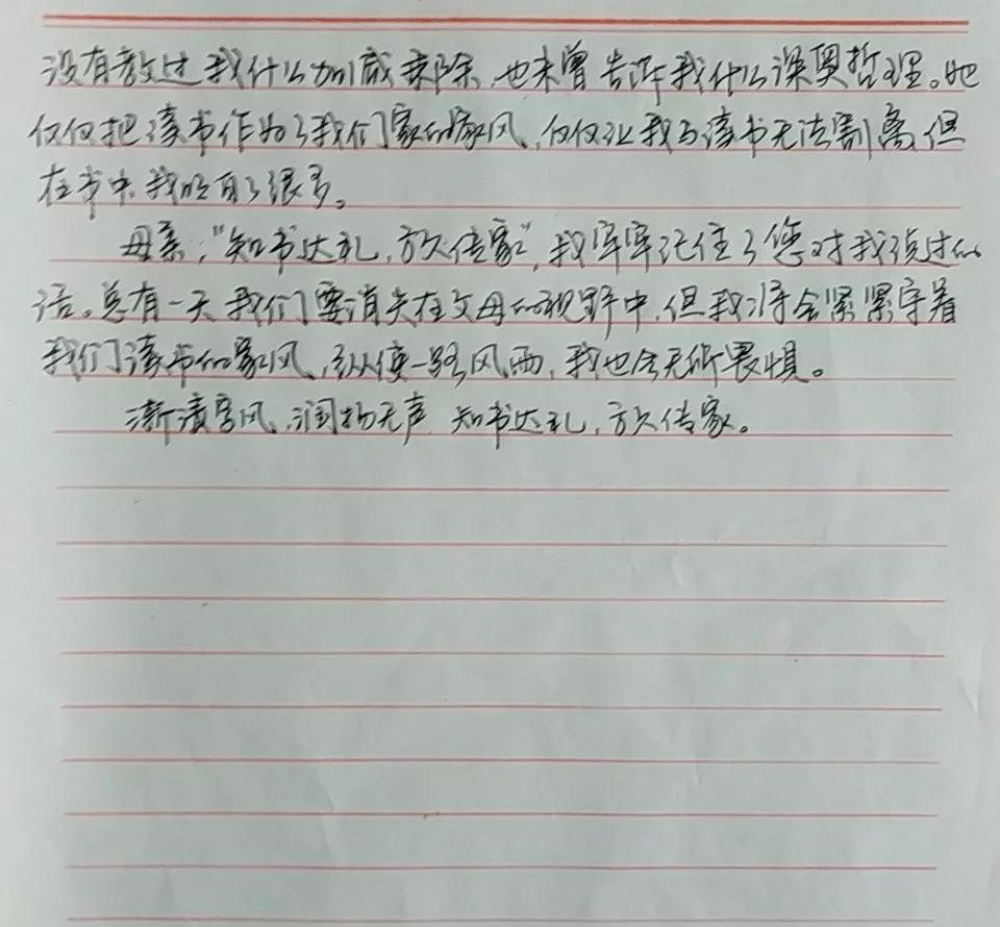 没有教过我什么加减乘除,也未曾告诉我什么深奥哲理。她
仅仅把读书作为了我们家的家风,仅仅让我与读书无法割离但
在书中,我明白了很多。
母亲,“知书达礼,方久传家”,我牢牢记住了您对我说过的
话。总有一天我们要消失在父母的视野中,但我将会紧紧守着
我们读书的家风,纵使一路风雨,我也会无所畏惧。
渐濡家风,润物无声 知书达礼,方久传家。